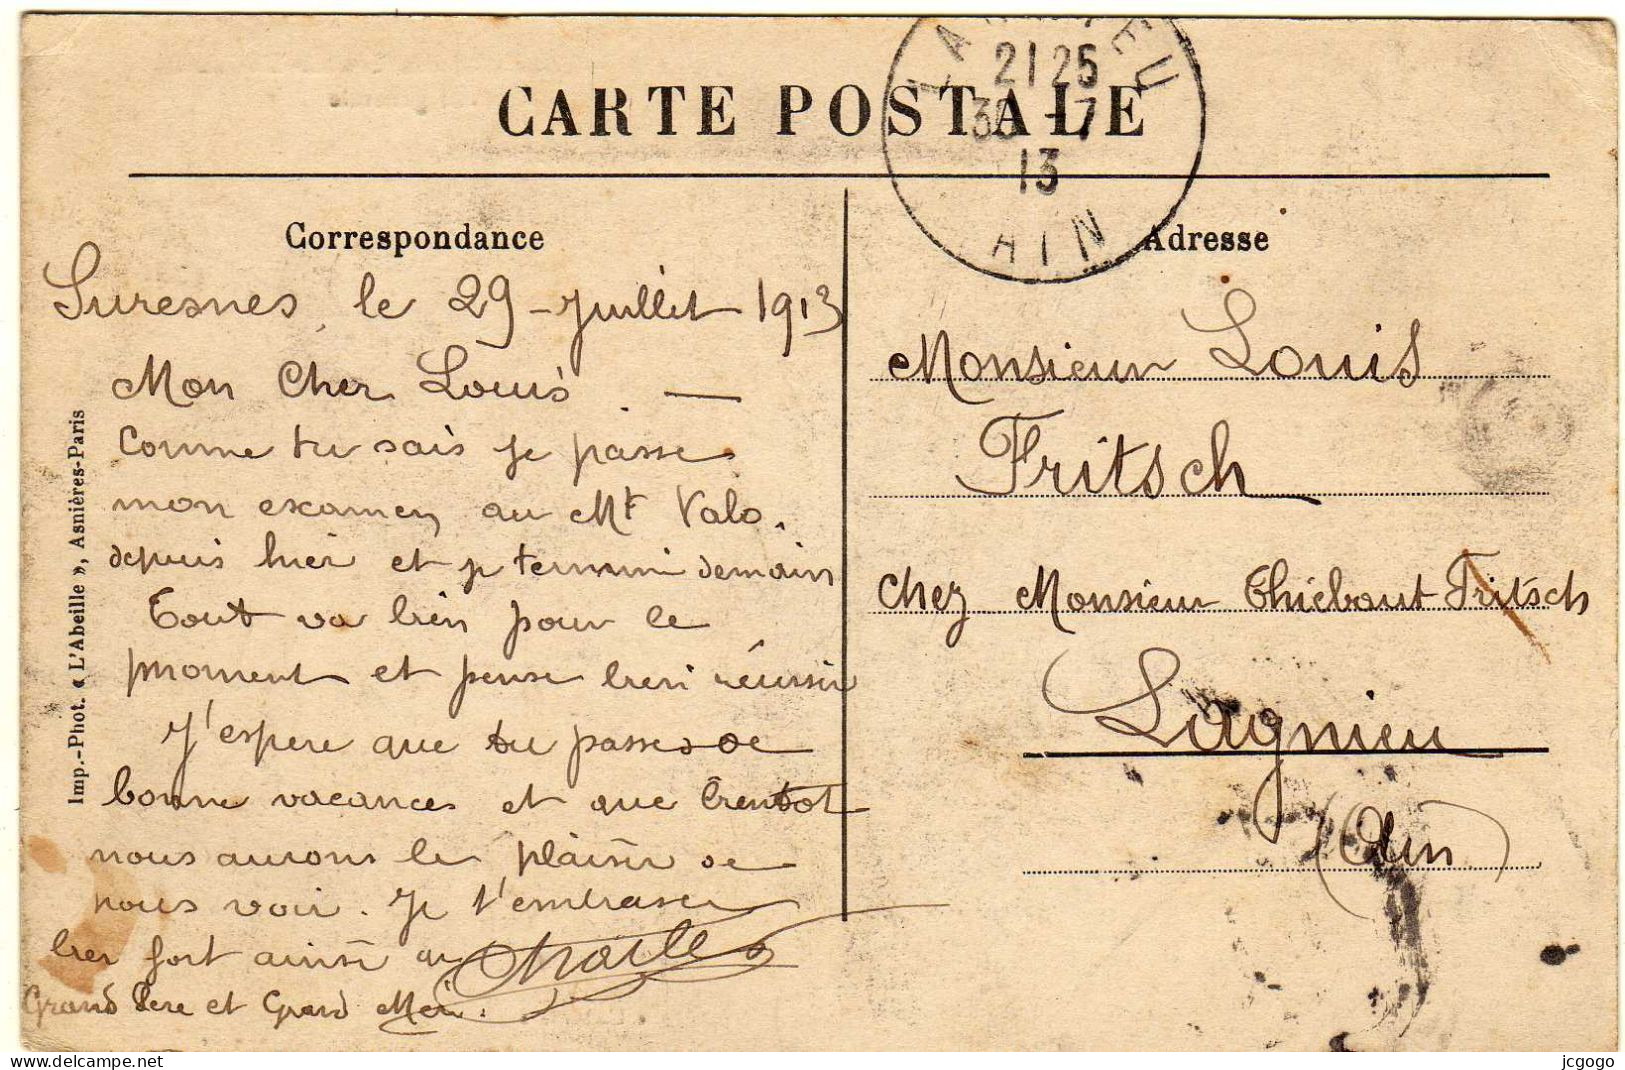 CARTE POSTALE
LAGNIEU
21 25
30 -7
13
AIN
Correspondance
Adresse
Suresnes, le 29 - Juillet 1913
Mon Cher Louis. —
Comme tu sais je passe
mon examen au Mt Valo.
depuis hier et je termine demain
Tout va bien pour le
moment et pense bien réussir
J'espere que tu passes de
bonne vacances et que bientot
nous aurons le plaisir de
nous voir. Je t'embrasse
bien fort ainsi que
Grand Pere et Grand Mere.
Charles
Monsieur Louis
Fritsch
Chez Monsieur Thiebaut Fritsch
Lagnieu
(Ain)
Imp.-Phot. « L'Abeille », Asnières-Paris
jcgogo